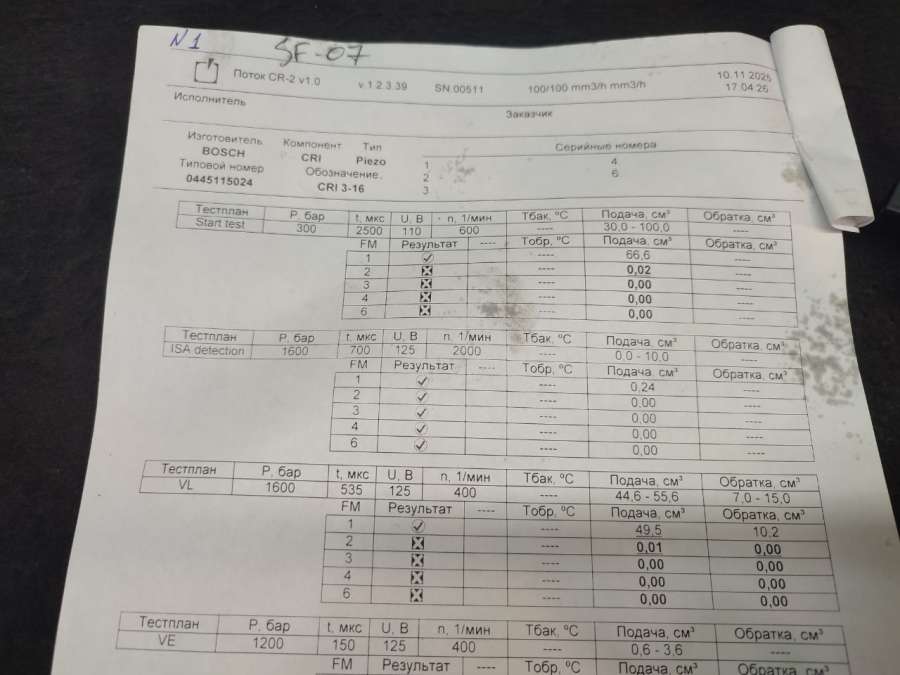 N 1
SF-07
Поток CR-2 v1.0 v.1.2.3.39 SN.00511 100/100 mm3/h mm3/h 10.11.2025
17.04.26
Исполнитель Заказчик
Изготовитель Компонент Тип Серийные номера
BOSCH CRI Piezo 1 4
Типовой номер Обозначение. 2 6
0445115024 CRI 3-16 3
Тестплан P, бар t, мкс U, В n, 1/мин Тбак, ºC Подача, см³ Обратка, см³
Start test 300 2500 110 600 ---- 30,0 - 100,0 ----
FM Результат ---- Тобр, ºC Подача, см³ Обратка, см³
1 ---- 66,6 ----
2 ---- 0,02 ----
3 ---- 0,00 ----
4 ---- 0,00 ----
6 ---- 0,00 ----
Тестплан P, бар t, мкс U, В n, 1/мин Тбак, ºC Подача, см³ Обратка, см³
ISA detection 1600 700 125 2000 ---- 0,0 - 10,0 ----
FM Результат ---- Тобр, ºC Подача, см³ Обратка, см³
1 ---- 0,24 ----
2 ---- 0,00 ----
3 ---- 0,00 ----
4 ---- 0,00 ----
6 ---- 0,00 ----
Тестплан P, бар t, мкс U, В n, 1/мин Тбак, ºC Подача, см³ Обратка, см³
VL 1600 535 125 400 ---- 44,6 - 55,6 7,0 - 15,0
FM Результат ---- Тобр, ºC Подача, см³ Обратка, см³
1 ---- 49,5 10,2
2 ---- 0,01 0,00
3 ---- 0,00 0,00
4 ---- 0,00 0,00
6 ---- 0,00 0,00
Тестплан P, бар t, мкс U, В n, 1/мин Тбак, ºC Подача, см³ Обратка, см³
VE 1200 150 125 400 ---- 0,6 - 3,6 ----
FM Результат ---- Тобр, ºC Подача, см³ Обратка, см³